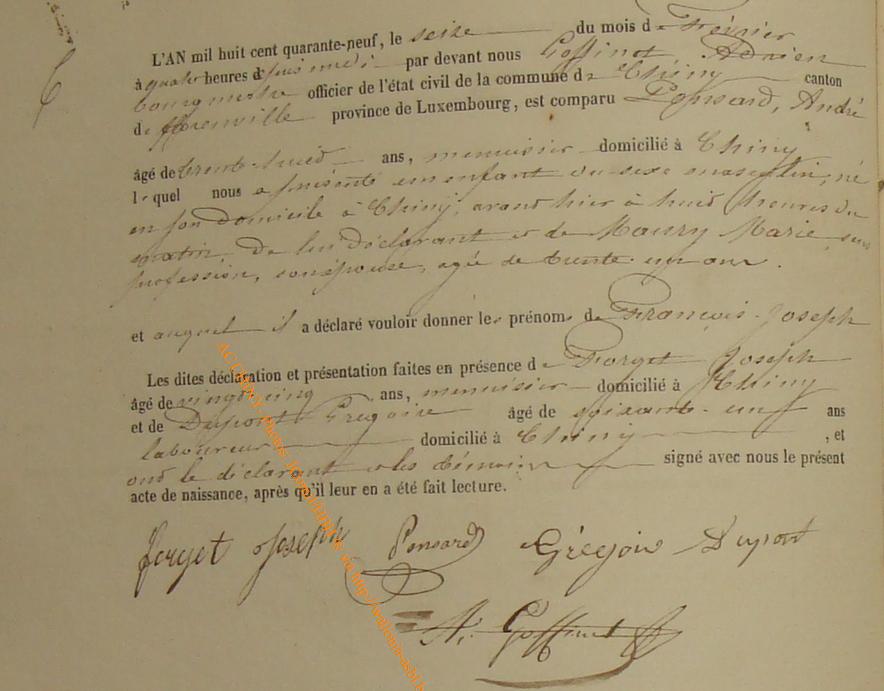 L'AN mil huit cent quarante-neuf, le seize du mois de Février
à quatre heures depuis midi par devant nous Goffinet, Adrien
bourgmestre officier de l'état civil de la commune de Chiny canton
de fflorenville province de Luxembourg, est comparu Ponsard, André
âgé de trente-huit ans, menuisier domicilié à Chiny
lequel nous a présenté un enfant du sexe masculin, né
en son domicile à Chiny, avant hier à huit heures du
matin, De lui Déclarant et de Maury Marie, sans
profession, son épouse, agée de trente-un ans.
et auquel il a déclaré vouloir donner les prénoms de François-Joseph
Les dites déclaration et présentation faites en présence de Forget Joseph
âgé de vingt cinq ans, menuisier domicilié à Chiny
et de Dupont Gregoire âgé de soixante-un ans
laboureur domicilié à Chiny, et
ont le déclarant et les témoins signé avec nous le présent
acte de naissance, après qu'il leur en a été fait lecture.
forget Joseph Ponsard Grégoire Dupont
A. Goffinet